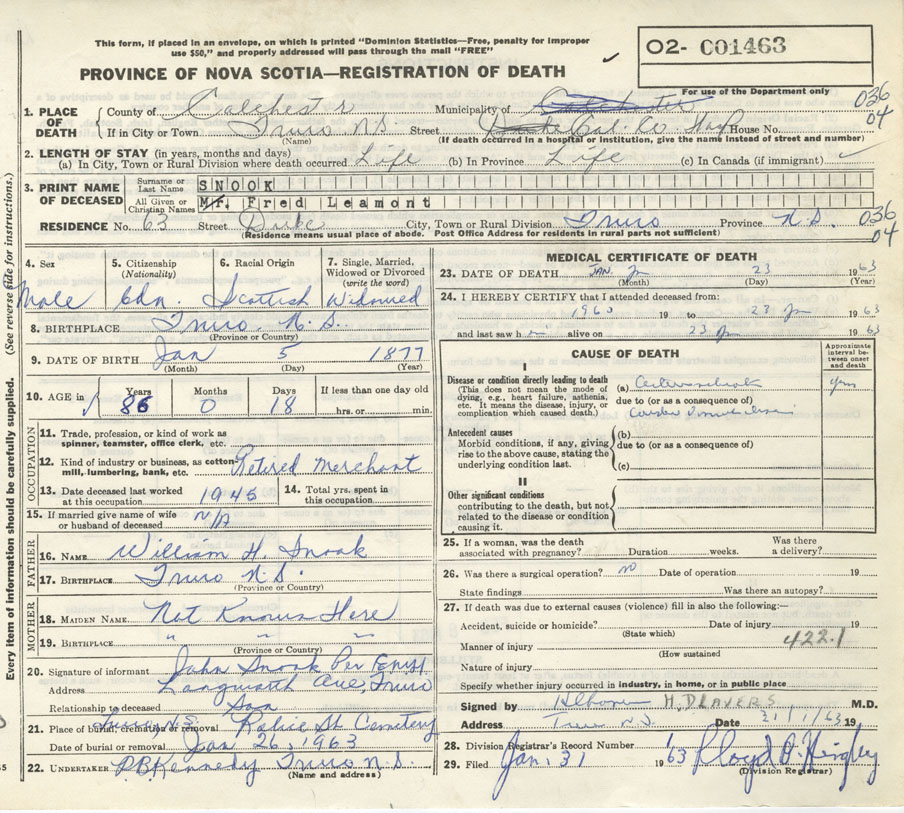 This form, if placed in an envelope, on which is printed "Dominion Statistics—Free, penalty for improper
use $50," and properly addressed will pass through the mail "FREE"
PROVINCE OF NOVA SCOTIA—REGISTRATION OF DEATH
02- C01463
For use of the Department only
1. PLACE OF DEATH
County of Colchester Municipality of Colchester
036
04
If in City or Town Truro N.S. Street Col. Co Hosp House No.
(Name) (If death occurred in a hospital or institution, give the name instead of street and number)
2. LENGTH OF STAY (in years, months and days)
(a) In City, Town or Rural Division where death occurred Life (b) In Province Life (c) In Canada (if immigrant)
3. PRINT NAME OF DECEASED
Surname or Last Name SNOOK
All Given or Christian Names Mr. Fred Leamont
RESIDENCE No. 63 Street Duke City, Town or Rural Division Truro Province N.S.
036
04
(Residence means usual place of abode. Post Office Address for residents in rural parts not sufficient)
(See reverse side for instructions.)
Every item of information should be carefully supplied.
4. Sex
Male
5. Citizenship (Nationality)
Cdn.
6. Racial Origin
Scottish
7. Single, Married, Widowed or Divorced (write the word)
Widowed
8. BIRTHPLACE Truro, N.S.
(Province or Country)
9. DATE OF BIRTH Jan 5 1877
(Month) (Day) (Year)
10. AGE in
Years 86
Months 0
Days 18
If less than one day old
hrs. or min.
OCCUPATION
11. Trade, profession, or kind of work as spinner, teamster, office clerk, etc.
12. Kind of industry or business, as cotton-mill, lumbering, bank, etc. Retired Merchant
13. Date deceased last worked at this occupation 1945
14. Total yrs. spent in this occupation
15. If married give name of wife or husband of deceased N/A
FATHER
16. NAME William H. Snook
17. BIRTHPLACE Truro N.S.
(Province or Country)
MOTHER
18. MAIDEN NAME Not Known Here
19. BIRTHPLACE " " "
(Province or Country)
20. Signature of informant John Snook Per
Address Longworth Ave, Truro
Relationship to deceased Son
21. Place of burial, cremation or removal Truro N.S. Robie St Cemetery
Date of burial or removal Jan 26, 1963
22. UNDERTAKER P.B. Kennedy Truro N.S.
(Name and address)
MEDICAL CERTIFICATE OF DEATH
23. DATE OF DEATH JAN. 23 1963
(Month) (Day) (Year)
24. I HEREBY CERTIFY that I attended deceased from:
1960 19 to 23 Jan 1963
and last saw h alive on 23 Jan 1963
CAUSE OF DEATH
Approximate interval between onset and death
I
Disease or condition directly leading to death
(This does not mean the mode of dying, e.g., heart failure, asthenia, etc. It means the disease, injury, or complication which caused death.)
(a)
yrs
due to (or as a consequence of)
Antecedent causes
Morbid conditions, if any, giving rise to the above cause, stating the underlying condition last.
(b)
due to (or as a consequence of)
(c)
II
Other significant conditions
contributing to the death, but not related to the disease or condition causing it.
25. If a woman, was the death associated with pregnancy? Duration weeks. Was there a delivery?
26. Was there a surgical operation? no Date of operation 19
State findings Was there an autopsy?
27. If death was due to external causes (violence) fill in also the following:—
Accident, suicide or homicide? Date of injury 19
(State which)
422.1
Manner of injury
(How sustained
Nature of injury
Specify whether injury occurred in industry, in home, or in public place
Signed by H. D LAVERS M.D.
Address Truro N.S. Date 21/1/63 19
28. Division Registrar's Record Number
29. Filed Jan. 31 1963
(Division Registrar)